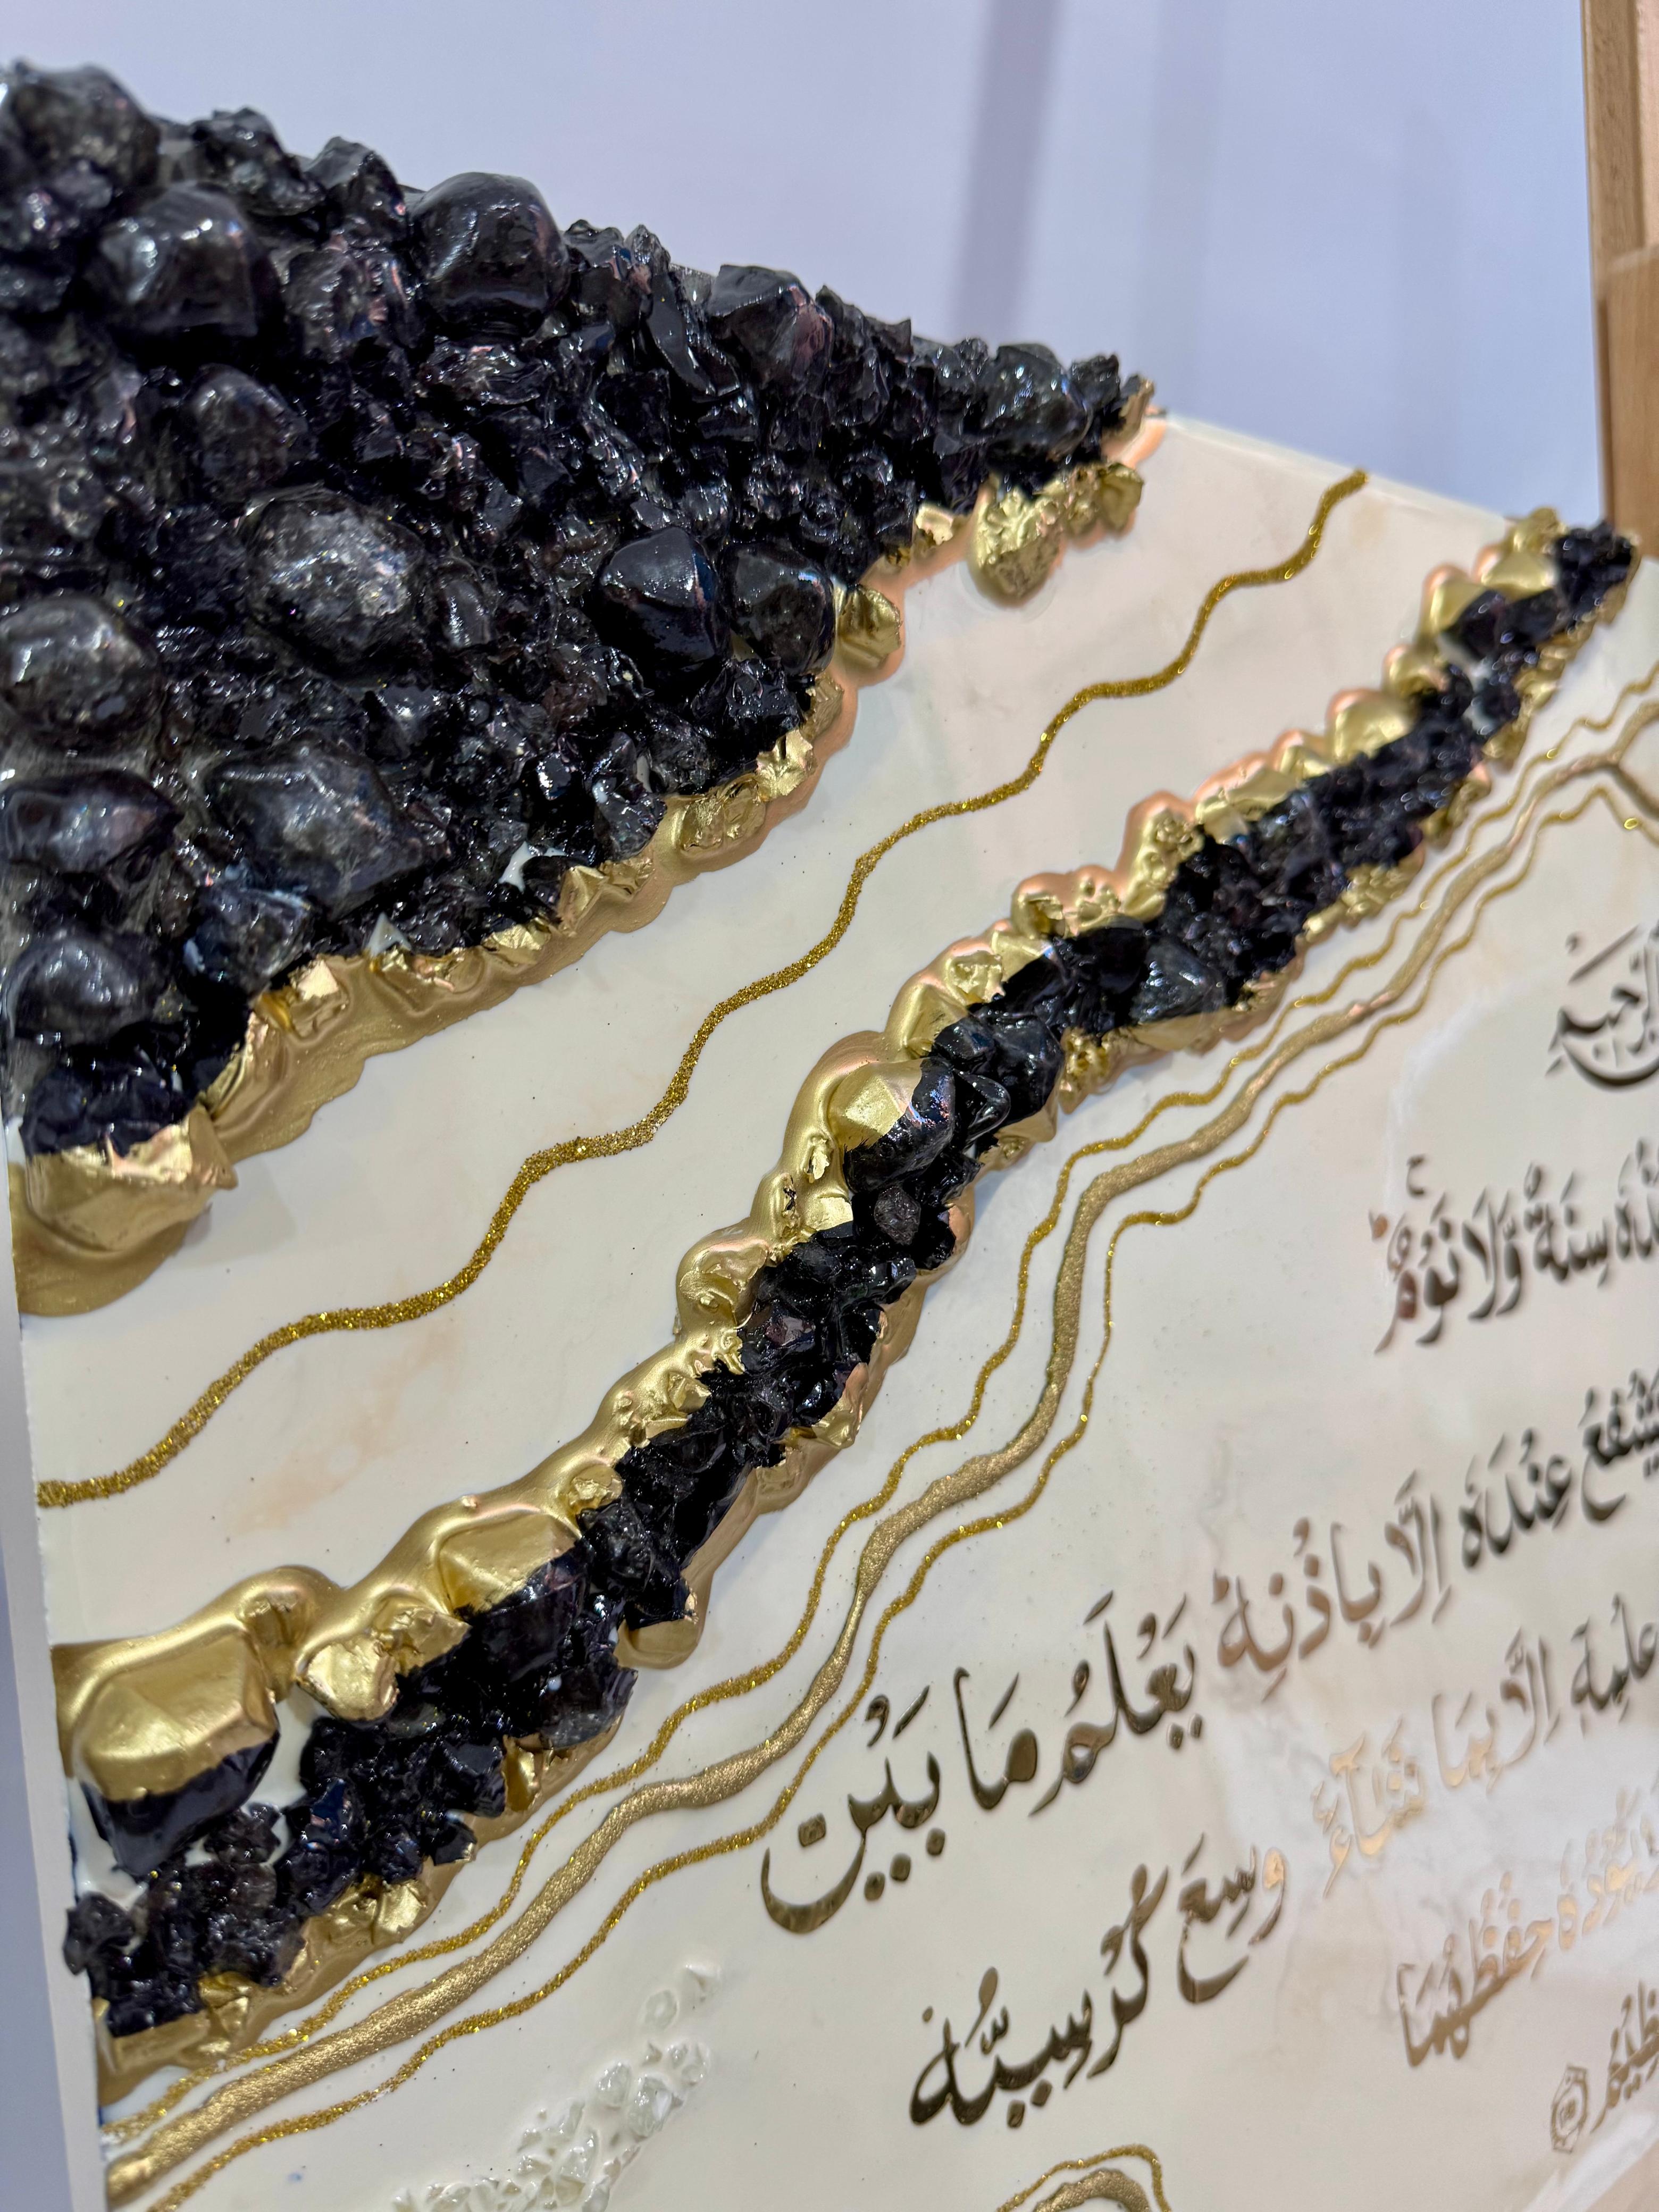 الرَّحِيْمِ
سِنَةٌ وَّلَا نَوْمٌؕ
يَشْفَعُ عِنْدَهٗ اِلَّا بِاِذْنِهٖ يَعْلَمُ مَا بَيْنَ
عِلْمِهٖ اِلَّا بِمَا شَآءَ وَسِعَ كُرْسِيُّهُ
يَـُٔوْدُهٗ حِفْظُهُمَا